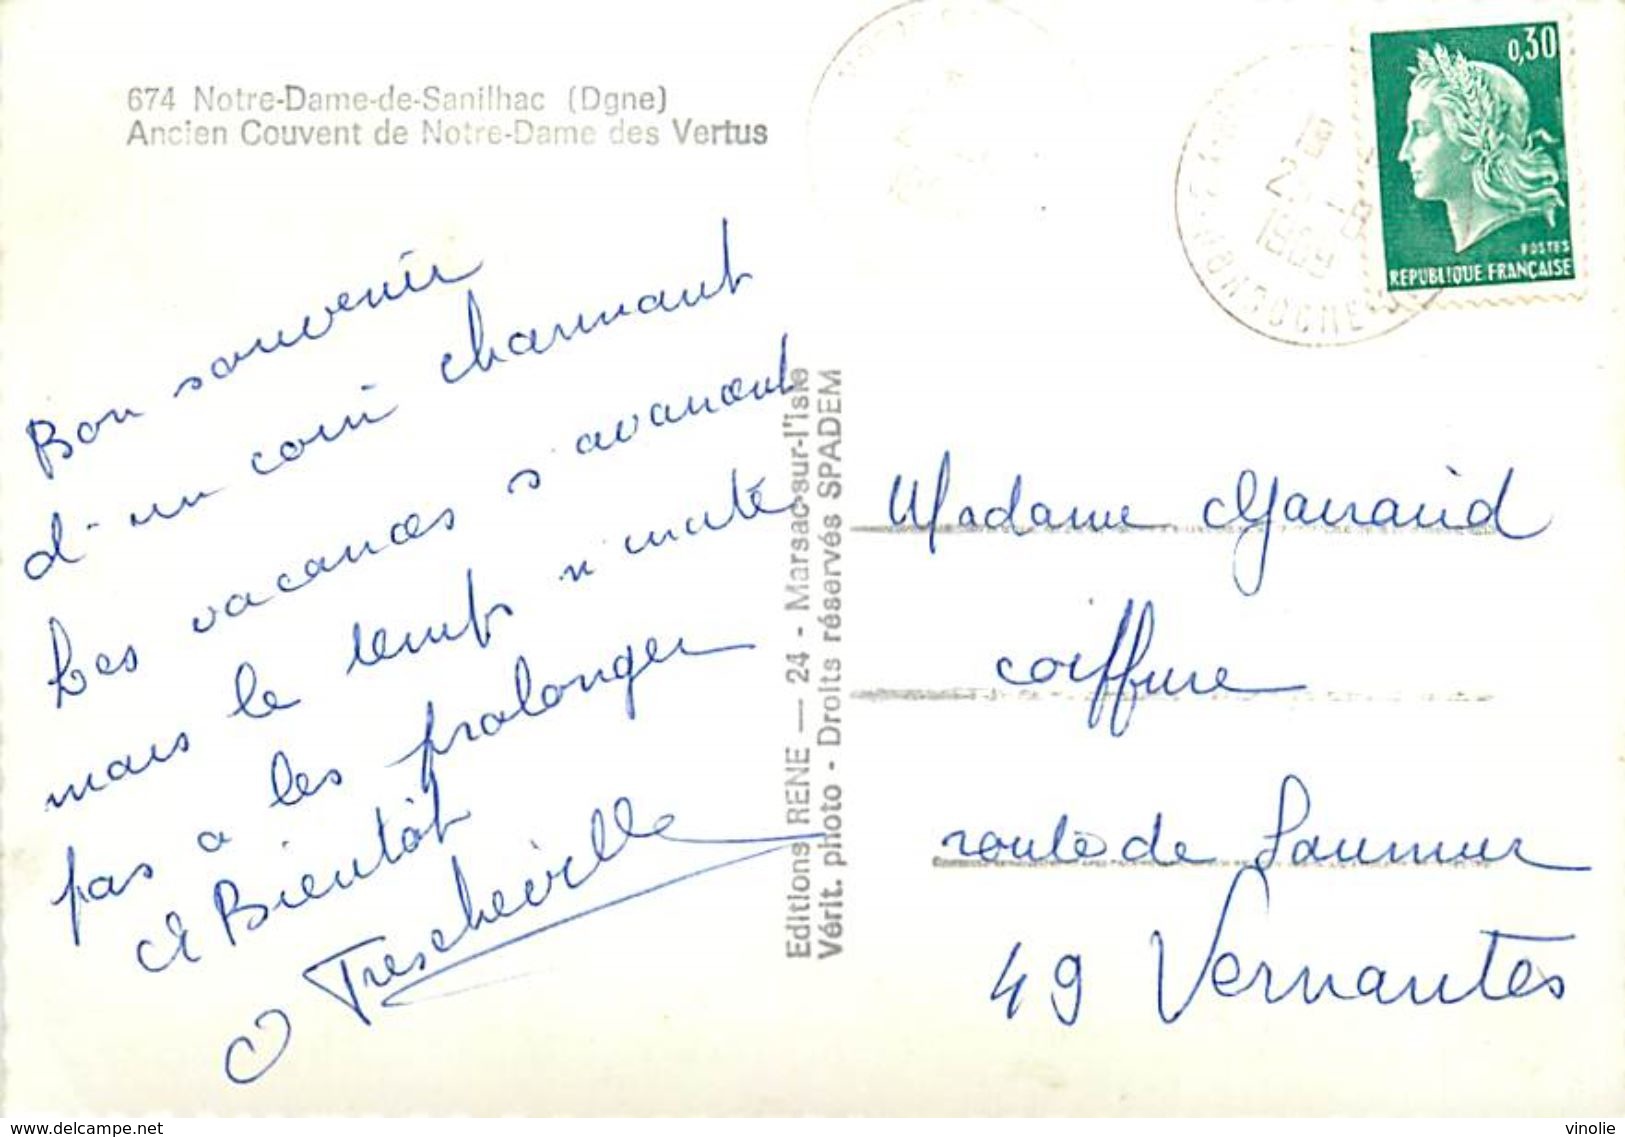 674 Notre-Dame-de-Sanilhac (Dgne)
Ancien Couvent de Notre-Dame des Vertus
Bon souvenir
d'un coin charmant
Les vacances s'avancent
mais le temps n'invite
pas a les prolonger
A Bientôt
Trescheville
Editions RENE — 24 - Marsac-sur-l'Isle
Vérit. photo - Droits réservés SPADEM
0,30
POSTES
REPUBLIQUE FRANÇAISE
1969
Madame
coiffure
route de Saumur
49 Vernantes
www.delcampe.net
vinolie